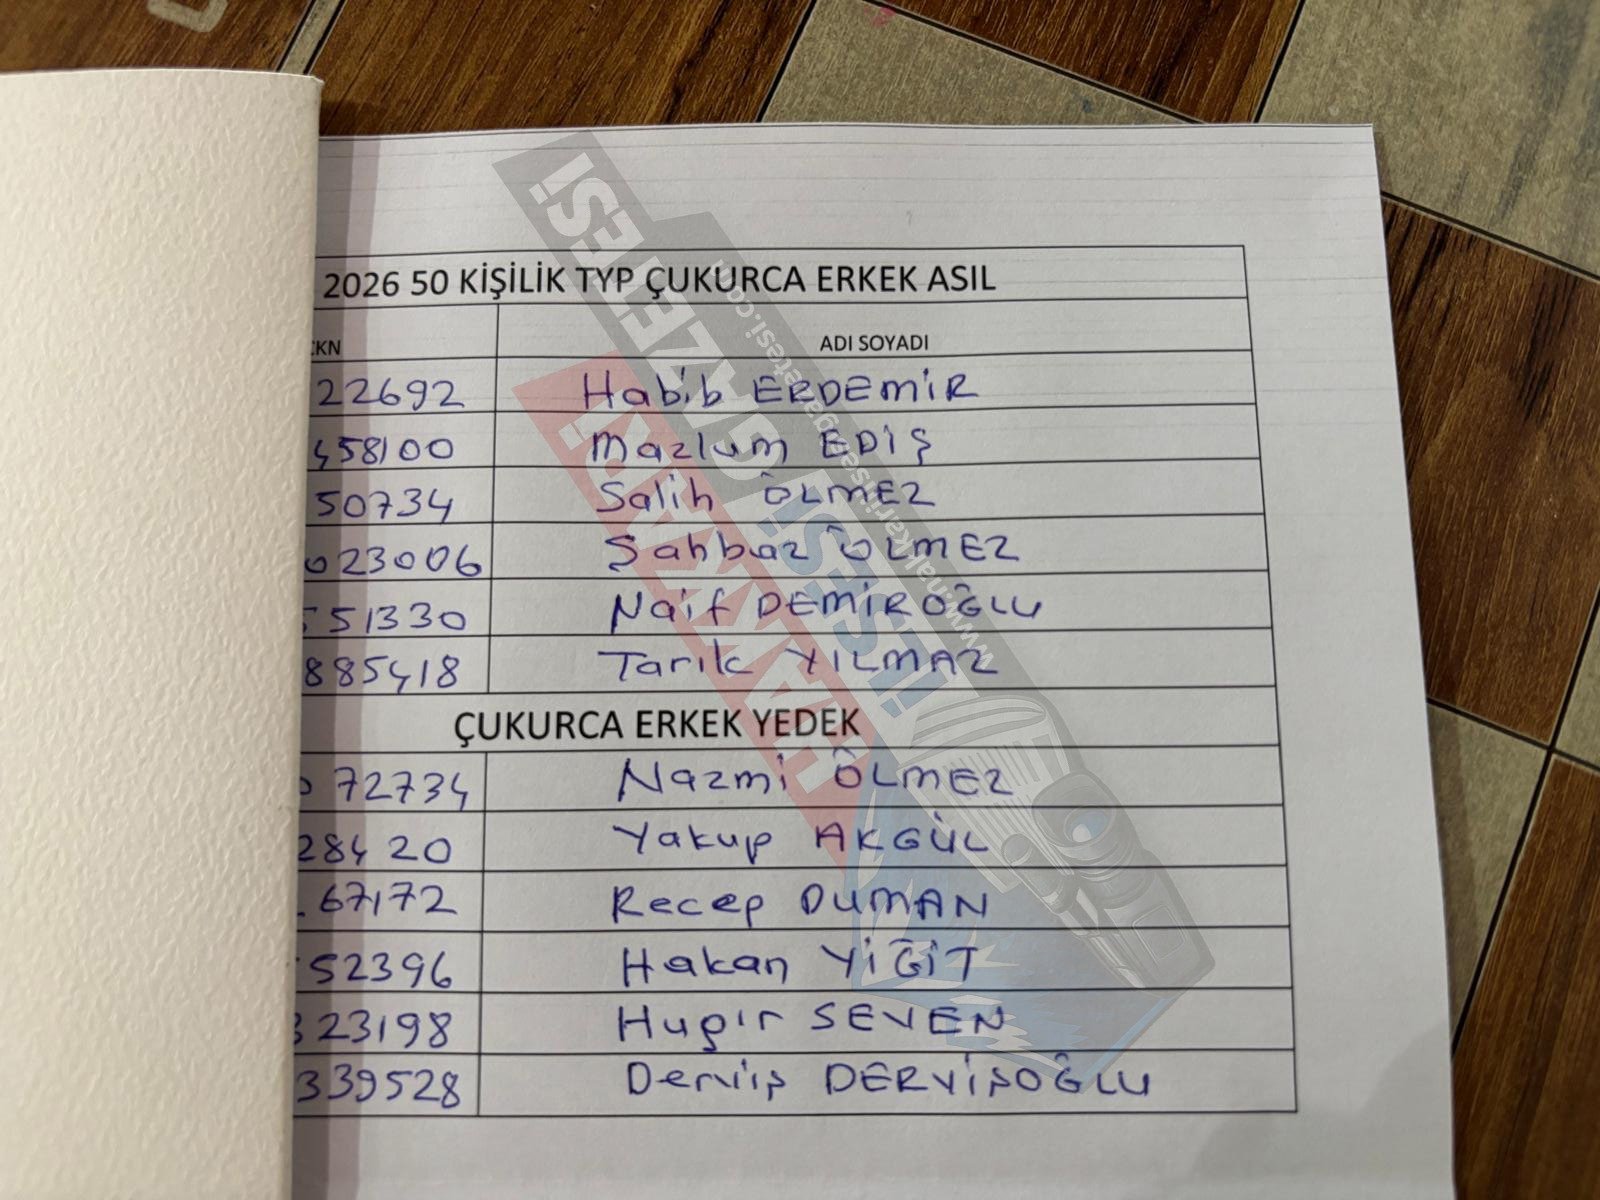 2026 50 KİŞİLİK TYP ÇUKURCA ERKEK ASIL
CKN ADI SOYADI
22692 Habib ERDEMİR
458100 Mazlum EDİŞ
50734 Salih ÖLMEZ
023006 Şahbaz ÖLMEZ
51330 Naif DEMİROĞLU
885418 Tarık YILMAZ
ÇUKURCA ERKEK YEDEK
72734 Nazmi ÖLMEZ
28420 Yakup AKGÜL
67172 Recep DUMAN
52396 Hakan YİĞİT
323198 Huşır SEVEN
339528 Derviş DERVİŞOĞLU
HAKKARİ
İLSESİ GAZETESİ
www.hakkariilsesigazetesi.com